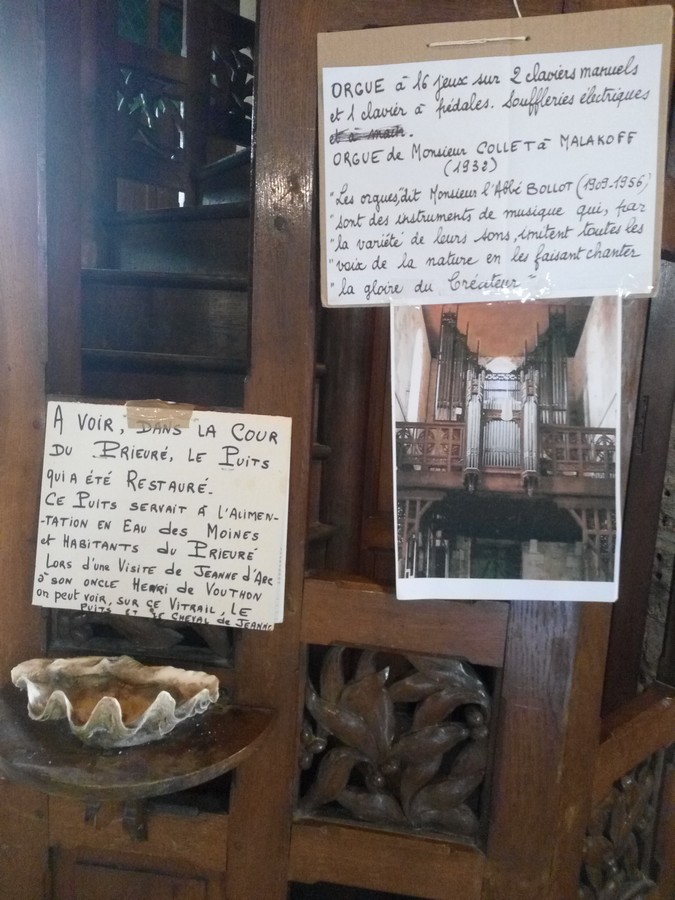 ORGUE à 16 jeux sur 2 claviers manuels
et 1 clavier à pédales. Souffleries électriques
et à main.
ORGUE de Monsieur COLLET à MALAKOFF
(1932)
"Les orgues," dit Monsieur l'Abbé BOLLOT (1909-1956)
"sont des instruments de musique qui, par
"la variété de leurs sons, imitent toutes les
"voix de la nature en les faisant chanter
"la gloire du Créateur"
A VOIR, DANS LA COUR
DU PRIEURÉ, LE PUITS
QUI A ÉTÉ RESTAURÉ.
CE PUITS SERVAIT A L'ALIMEN-
-TATION EN EAU des MOINES
et HABITANTS du PRIEURÉ
LORS d'une VISITE de JEANNE d'ARC
à SON ONCLE HENRI de VOUTHON
on peut VOIR, SUR CE VITRAIL, LE
PUITS ET LE CHEVAL de JEANNE.